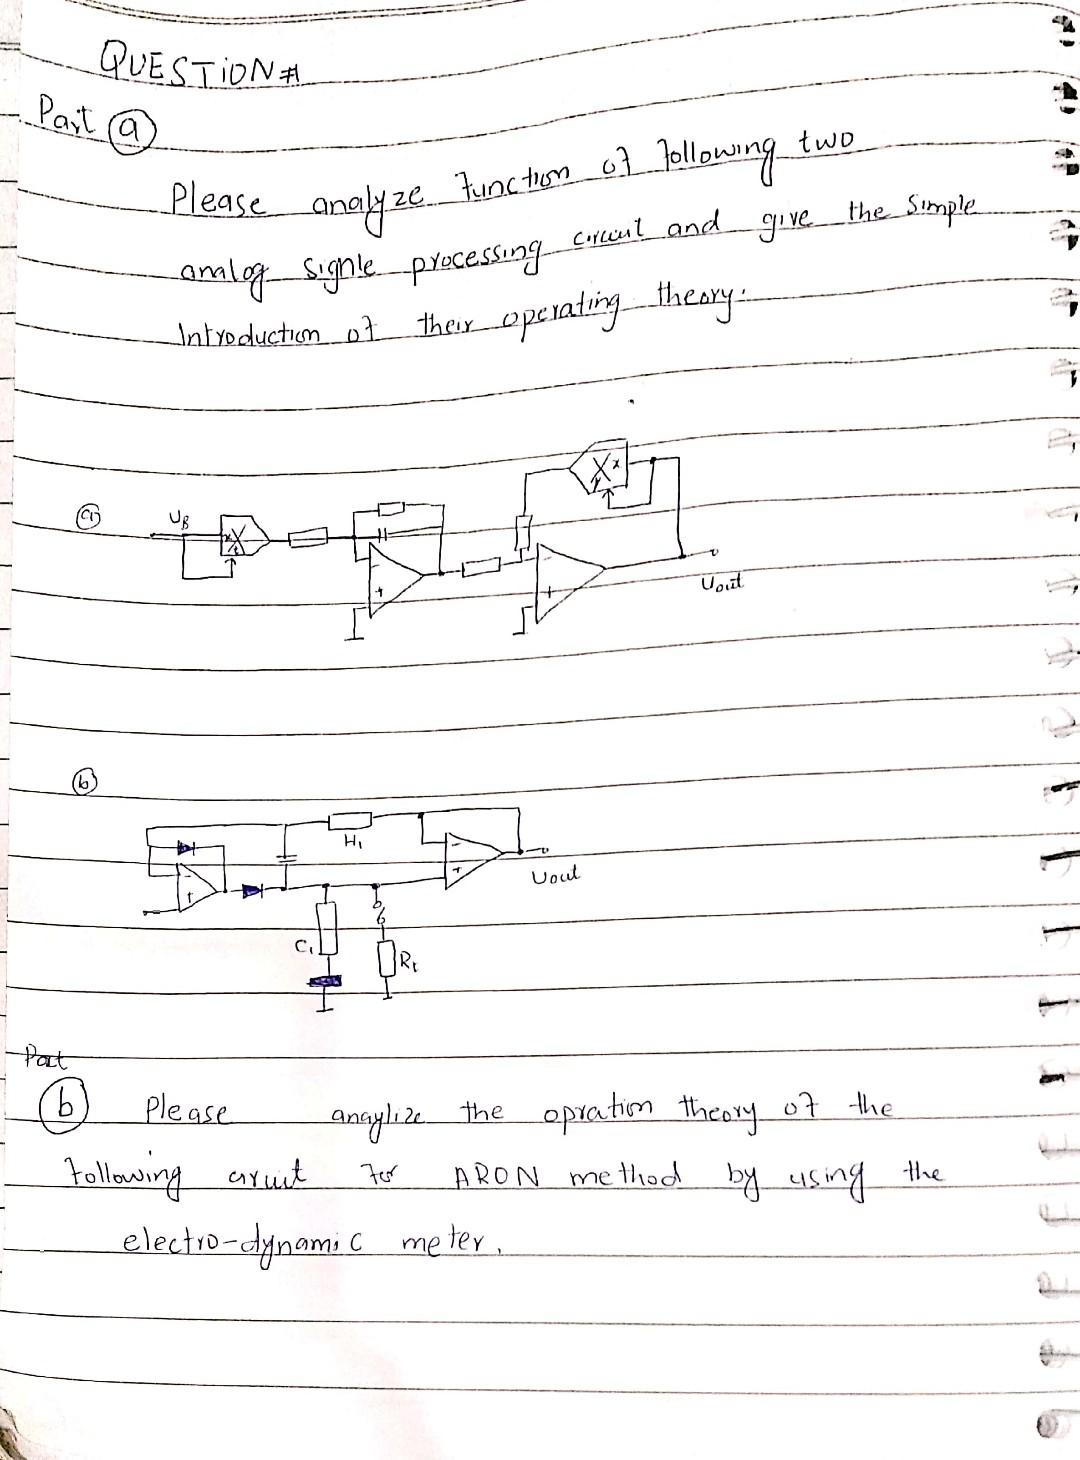 QUESTION #
Part (a)
Please analyze function of following two
analog signle processing circuit and give the simple
Introduction of their operating theory.
(a)
UB
X
X
Y
X
x
y
- +
- +
Uout
(b)
H1
- +
- +
Uout
C1
R1
Part
(b) Please anaylize the opration theory of the
following circuit for ARON method by using the
electro-dynamic meter.